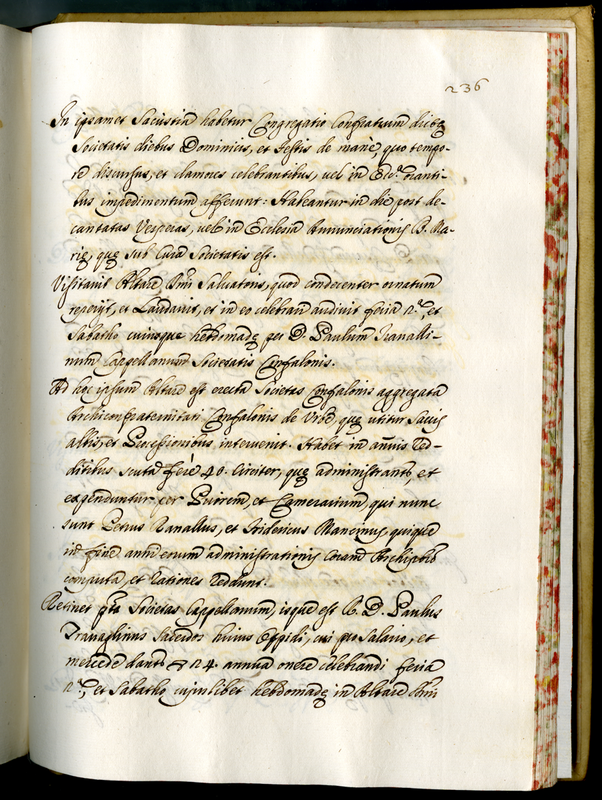 236
In ipsamet Sacristia habetur Congregatio Confratrum dictę
Societatis diebus Dominicis, et Festis de manè, quo tempo-
re discursus, et clamores celebrantibus, vel in Eccl.ª oranti-
bus impedimentum afferunt. Habeantur in die post de-
cantatas Vesperas, uel in Ecclesia Annunciationis B. Ma-
rię, quę sub Cura Societatis est.
Visitauit Altare Smi Saluatoris, quod condecenter ornatum
reperijt, et Laudauit, et in eo celebrari audiuit feria 2.ª, et
Sabatho cuiusque hebdomadę per D. Paulum Trauali-
num Cappellanum Societatis Confalonis.
Ad hoc ipsum Altare est erecta Societas Confalonis aggregata
Archiconfraternitati Confalonis de Vrbe, quę utitur Saccis
albis, et Processionibus interuenit. Habet in annuis red-
ditibus scuta ferè 40. circiter, quę administrantr, et
expenduntur per Priorem, et Camerarium, qui nunc
sunt Petrus Ranallus, et Fridericus Mancinus, quique
in fine anni eorum administrationis coram Archipbro
computa, et rationes reddunt.
Retinet pta Societas Cappellanum, isque est R. D. Paulus
Trauaglinus Sacerdos huius Oppidi, cui pro Salario, et
mercede dantr 24. annua onere celebrandi feria
2.ª, et Sabatho cuiuslibet hebdomadę in Altare Smi